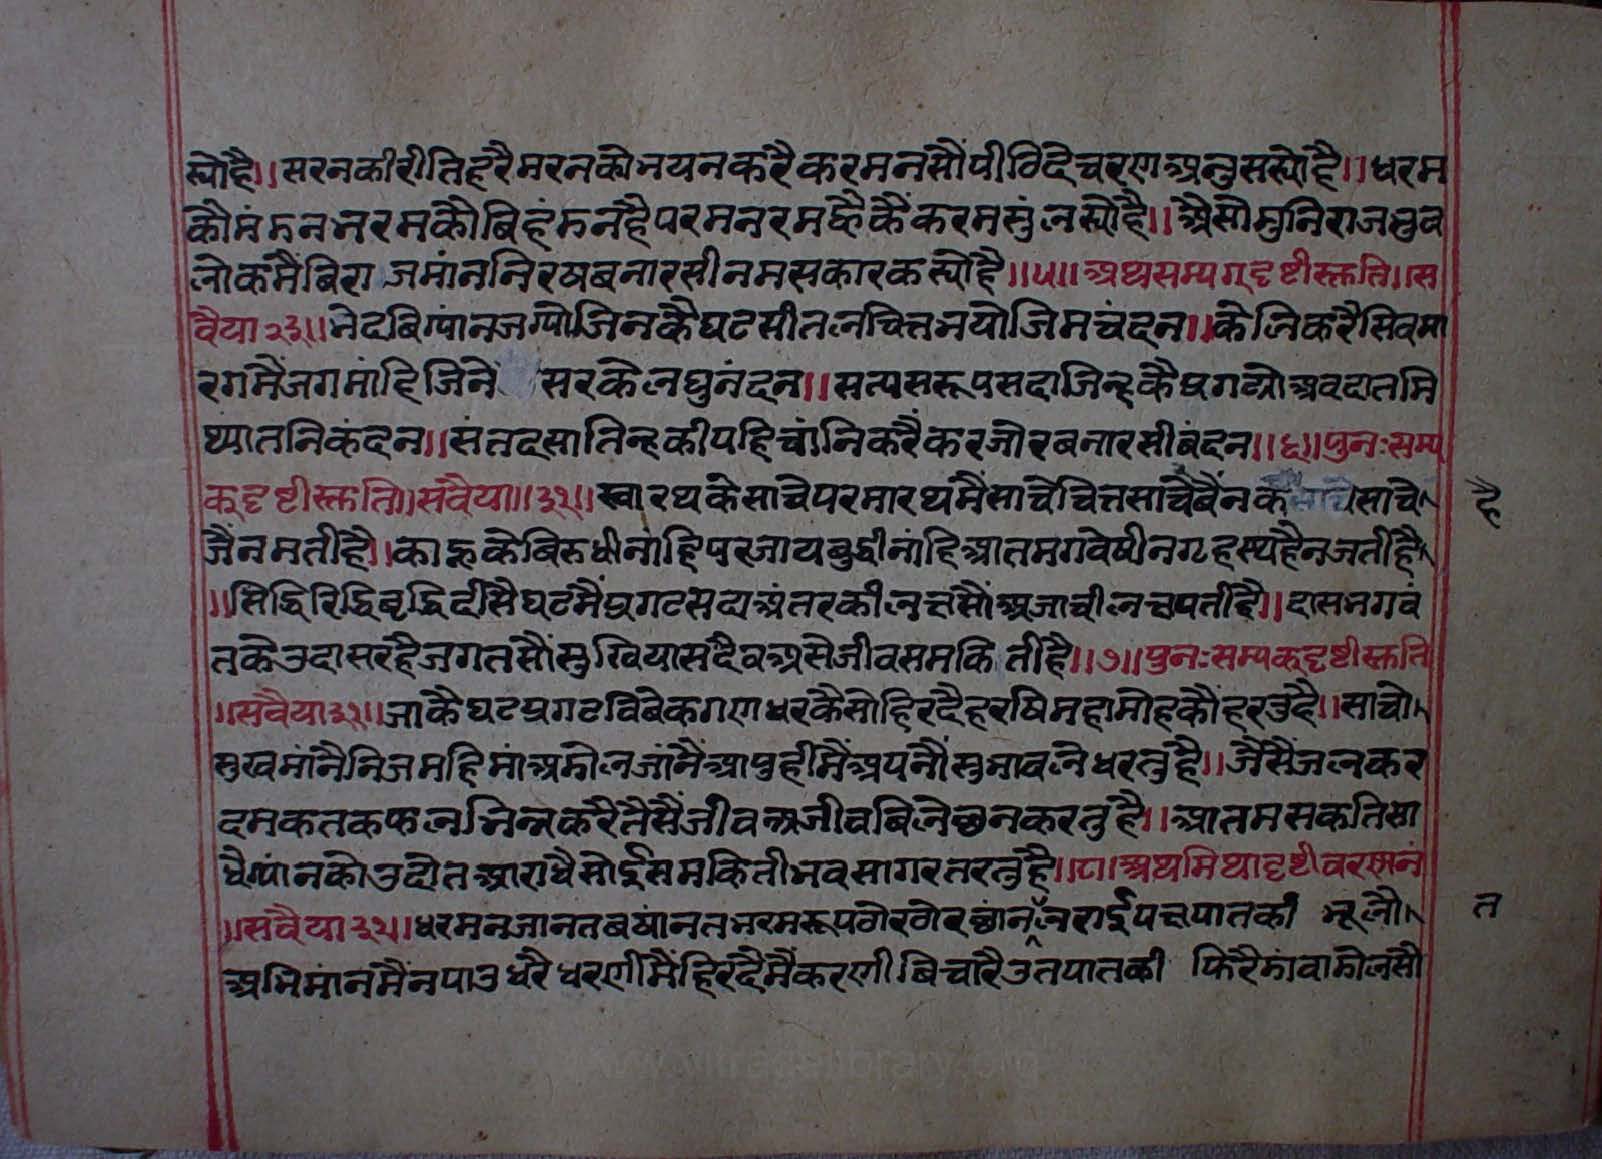 स्योहै।। सरनकीरीतिहरैमरनकोनयनकरैकरमनसौंपीठिदैचरणअनुसस्योहै।। धरम
कौमंडनभरमकौबिहंडनहैपरमनरमव्हैकैंकरमसुंलस्योहै।। औसोमुनिराजभुव
लोकमैंबिराजमांननिरषबनारसीनमसकारकस्योहै।।५।। अथसम्यग्दृष्टीस्तुति।।स
वैया२३।। भेदबिग्यांनजग्योजिनकैघटसीतलचित्तभयोजिमचंदन।। केलिकरैसिवमा
रगमैंजगमांहिजिने सरकेलघुनंदन।। सत्यसरूपसदाजिन्हकैप्रगट्योअवदातमि
थ्यातनिकंदन।। संतदसातिन्हकीपहिचांनिकरैंकरजोरबनारसीबंदन।।६।। पुनःसम्य
क्दृष्टीस्तुति।।सवैया।।३१।। स्वारथकेसाचेपरमारथमैंसाचेचित्तसाचेबैंनक साचेसाचे है
जैंनमतीहै।। काहूकेबिरुधीनांहिपरजायबुद्धीनांहिआतमगवेषीनगृहस्थहैनजतीहै
।।सिद्धिरिद्धिबृद्धिदीसैघटमैंप्रगटसदाअंतरकीलच्चसौंअजाचीलच्चपतीहै।। दासभगवं
तकेउदासरहैजगतसौंसुखियासदैवअसेजीवसमकितीहै।।७।। पुनःसम्यक्दृष्टीस्तुति
।।सवैया३१।। जाकैघटप्रगटविबेकगणधरकैसोहिरदैहरषिमहामोहकौंहरतुहै।। साचो
सुखमांनैनिजमहिमांअडोलजांनैंआपुहीमैंअपनौंसुभावलेधरतुहै।। जैसैंजलकर
दमकतकफलभिन्नकरैतैसैंजीवअजीवबिलेछनकरतुहै।। आतमसकतिसा
धैग्यांनकोउदोतआराधैसोईसमकितीभवसागरतरतुहै।।८।। अथमिथादृष्टीवरणनं
।।सवैया३१।। धरमनजानतबषांनतभरमरूपठौरठौरठांनलराईपच्चपातकी भूलौ त
अभिमांनमैंनपाउधरैधरणीमैंहिरदैमैंकरणीबिचारैउतपातकी फिरैडांवाडोलसौ